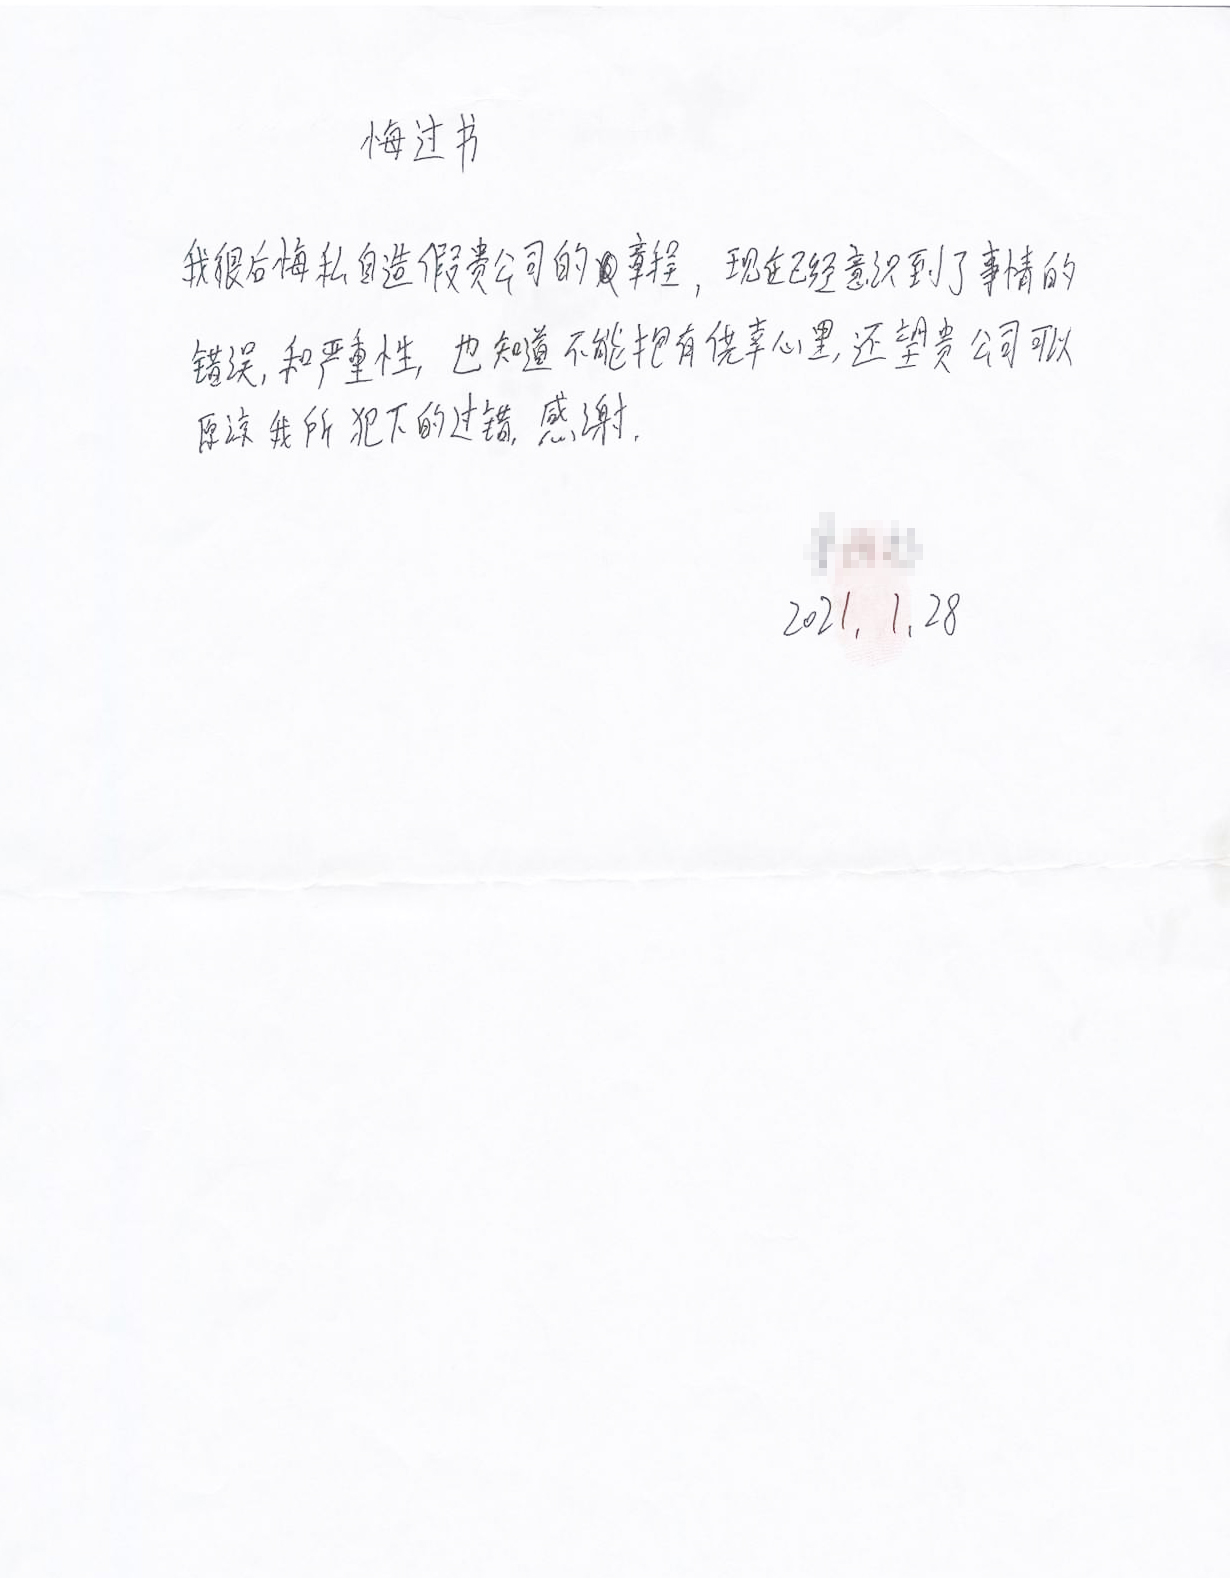 悔过书
我很后悔私自造假贵公司的章程，现在已经意识到了事情的
错误,和严重性,也知道不能抱有侥幸心里,还望贵公司可以
原凉我所犯下的过错,感谢.
2021.1.28